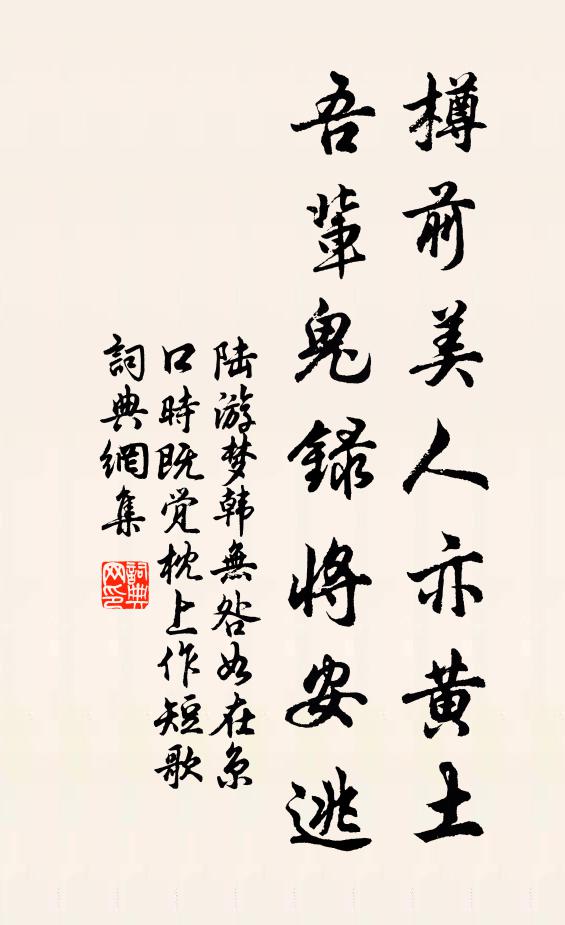 樽前美人亦黄土
吾輩鬼録将安逃
陆游梦韩無咎如在京
口時既觉枕上作短歌
詞典網集
詞典
网印